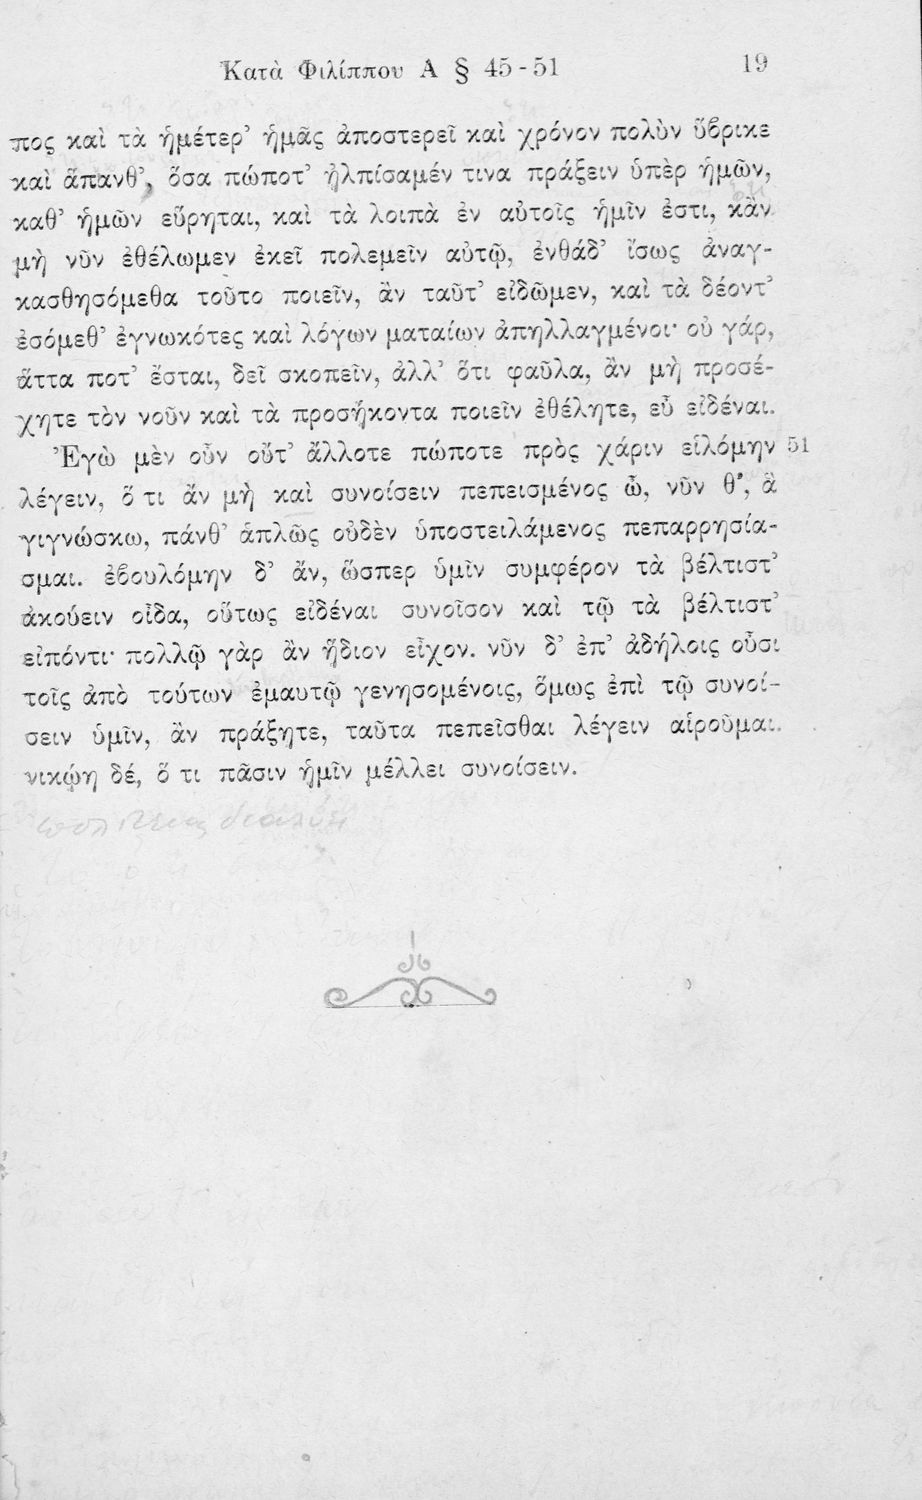 Κατὰ Φιλίππου Α § 45-51
19
πος καὶ τὰ ἡμέτερ’ ἡμᾶς ἀποστερεῖ καὶ χρόνον πολὺν ὕβρικε
καὶ ἅπανθ’, ὅσα πώποτ’ ἠλπίσαμέν τινα πράξειν ὑπὲρ ἡμῶν,
καθ’ ἡμῶν εὕρηται, καὶ τὰ λοιπὰ ἐν αὐτοῖς ἡμῖν ἐστι, κἂν
μὴ νῦν ἐθέλωμεν ἐκεῖ πολεμεῖν αὐτῷ, ἐνθάδ’ ἴσως ἀναγ-
κασθησόμεθα τοῦτο ποιεῖν, ἂν ταῦτ’ εἰδῶμεν, καὶ τὰ δέοντ’
ἐσόμεθ’ ἐγνωκότες καὶ λόγων ματαίων ἀπηλλαγμένοι· οὐ γάρ,
ἅττα ποτ’ ἔσται, δεῖ σκοπεῖν, ἀλλ’ ὅτι φαῦλα, ἂν μὴ προσέ-
χητε τὸν νοῦν καὶ τὰ προσήκοντα ποιεῖν ἐθέλητε, εὖ εἰδέναι.
Ἐγὼ μὲν οὖν οὔτ’ ἄλλοτε πώποτε πρὸς χάριν εἱλόμην 51
λέγειν, ὅ τι ἂν μὴ καὶ συνοίσειν πεπεισμένος ὦ, νῦν θ’, ἃ
γιγνώσκω, πάνθ’ ἁπλῶς οὐδὲν ὑποστειλάμενος πεπαρρησία-
σμαι. ἐβουλόμην δ’ ἄν, ὥσπερ ὑμῖν συμφέρον τὰ βέλτιστ’
ἀκούειν οἶδα, οὕτως εἰδέναι συνοῖσον καὶ τῷ τὰ βέλτιστ’
εἰπόντι· πολλῷ γὰρ ἂν ἥδιον εἶχον. νῦν δ’ ἐπ’ ἀδήλοις οὖσι
τοῖς ἀπὸ τούτων ἐμαυτῷ γενησομένοις, ὅμως ἐπὶ τῷ συνοί-
σειν ὑμῖν, ἂν πράξητε, ταῦτα πεπεῖσθαι λέγειν αἱροῦμαι.
νικῴη δέ, ὅ τι πᾶσιν ἡμῖν μέλλει συνοίσειν.